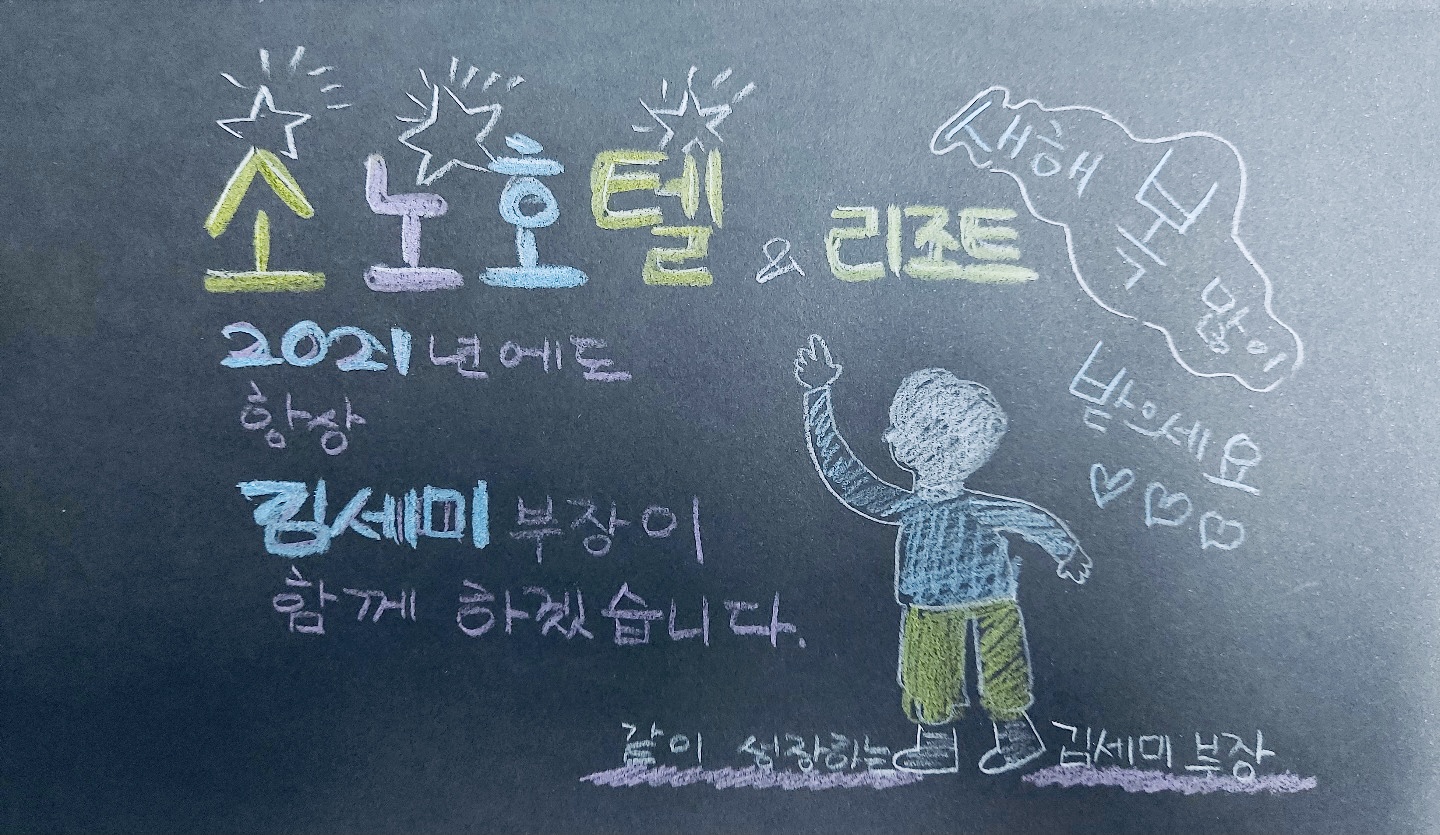 소노호텔 & 리조트
2021년에도
항상
김세미 부장이
함께 하겠습니다.
새해
복
많이
받으세요
같이 성장하는 김세미 부장